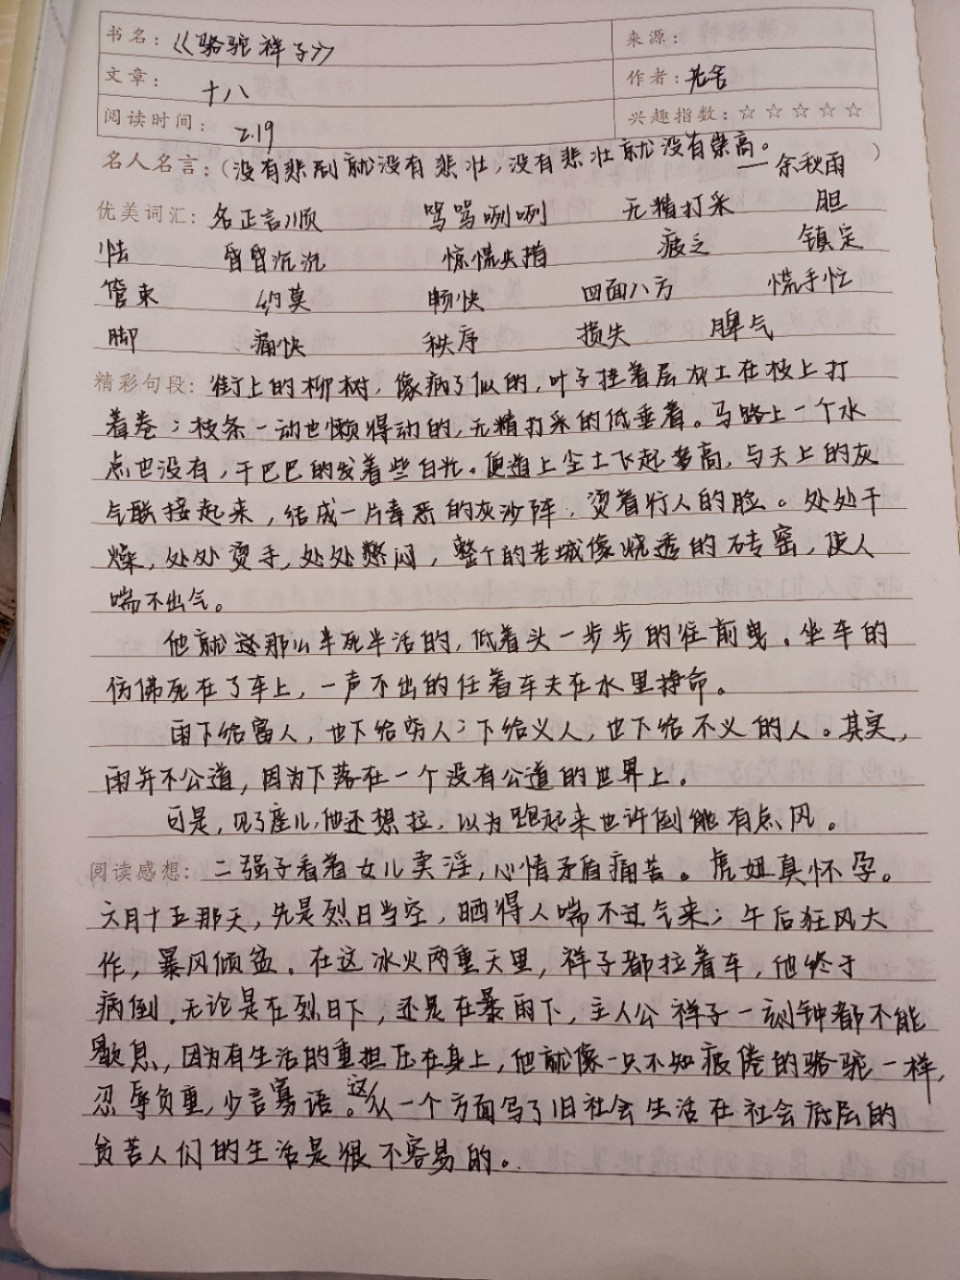 书名：《骆驼祥子》 来源：
文章：十八 作者：老舍
阅读时间：2.19 兴趣指数：☆☆☆☆☆
名人名言：（没有悲剧就没有悲壮，没有悲壮就没有崇高。——余秋雨）
优美词汇：名正言顺 骂骂咧咧 无精打采 胆
怯 昏昏沉沉 惊慌失措 疲乏 镇定
管束 约莫 畅快 四面八方 慌手忙
脚 痛快 秩序 损失 脾气
精彩句段：街上的柳树，像病了似的，叶子挂着层灰土在枝上打
着卷；枝条一动也懒得动的，无精打采的低垂着。马路上一个水
点也没有，干巴巴的发着些白光。便道上尘土飞起多高，与天上的灰
气联接起来，结成一片毒恶的灰沙阵，烫着行人的脸。处处干
燥，处处烫手，处处憋闷，整个的老城像烧透的砖窑，使人
喘不出气。
他就这那么半死半活的，低着头一步步的往前曳。坐车的
仿佛死在了车上，一声不出的任着车夫在水里挣命。
雨下给富人，也下给穷人；下给义人，也下给不义的人。其实，
雨并不公道，因为下落在一个没有公道的世界上。
可是，见了座儿，他还想拉，以为跑起来也许倒能有点风。
阅读感想：二强子看着女儿卖淫，心情矛盾痛苦。虎妞真怀孕。
六月十五那天，先是烈日当空，晒得人喘不过气来；午后狂风大
作，暴风倾盆。在这冰火两重天里，祥子都拉着车，他终于
病倒。无论是在烈日下，还是在暴雨下，主人公祥子一刻钟都不能
歇息，因为有生活的重担压在身上，他就像一只不知疲倦的骆驼一样，
忍辱负重，少言寡语。这从一个方面写了旧社会生活在社会底层的
贫苦人们的生活是很不容易的。